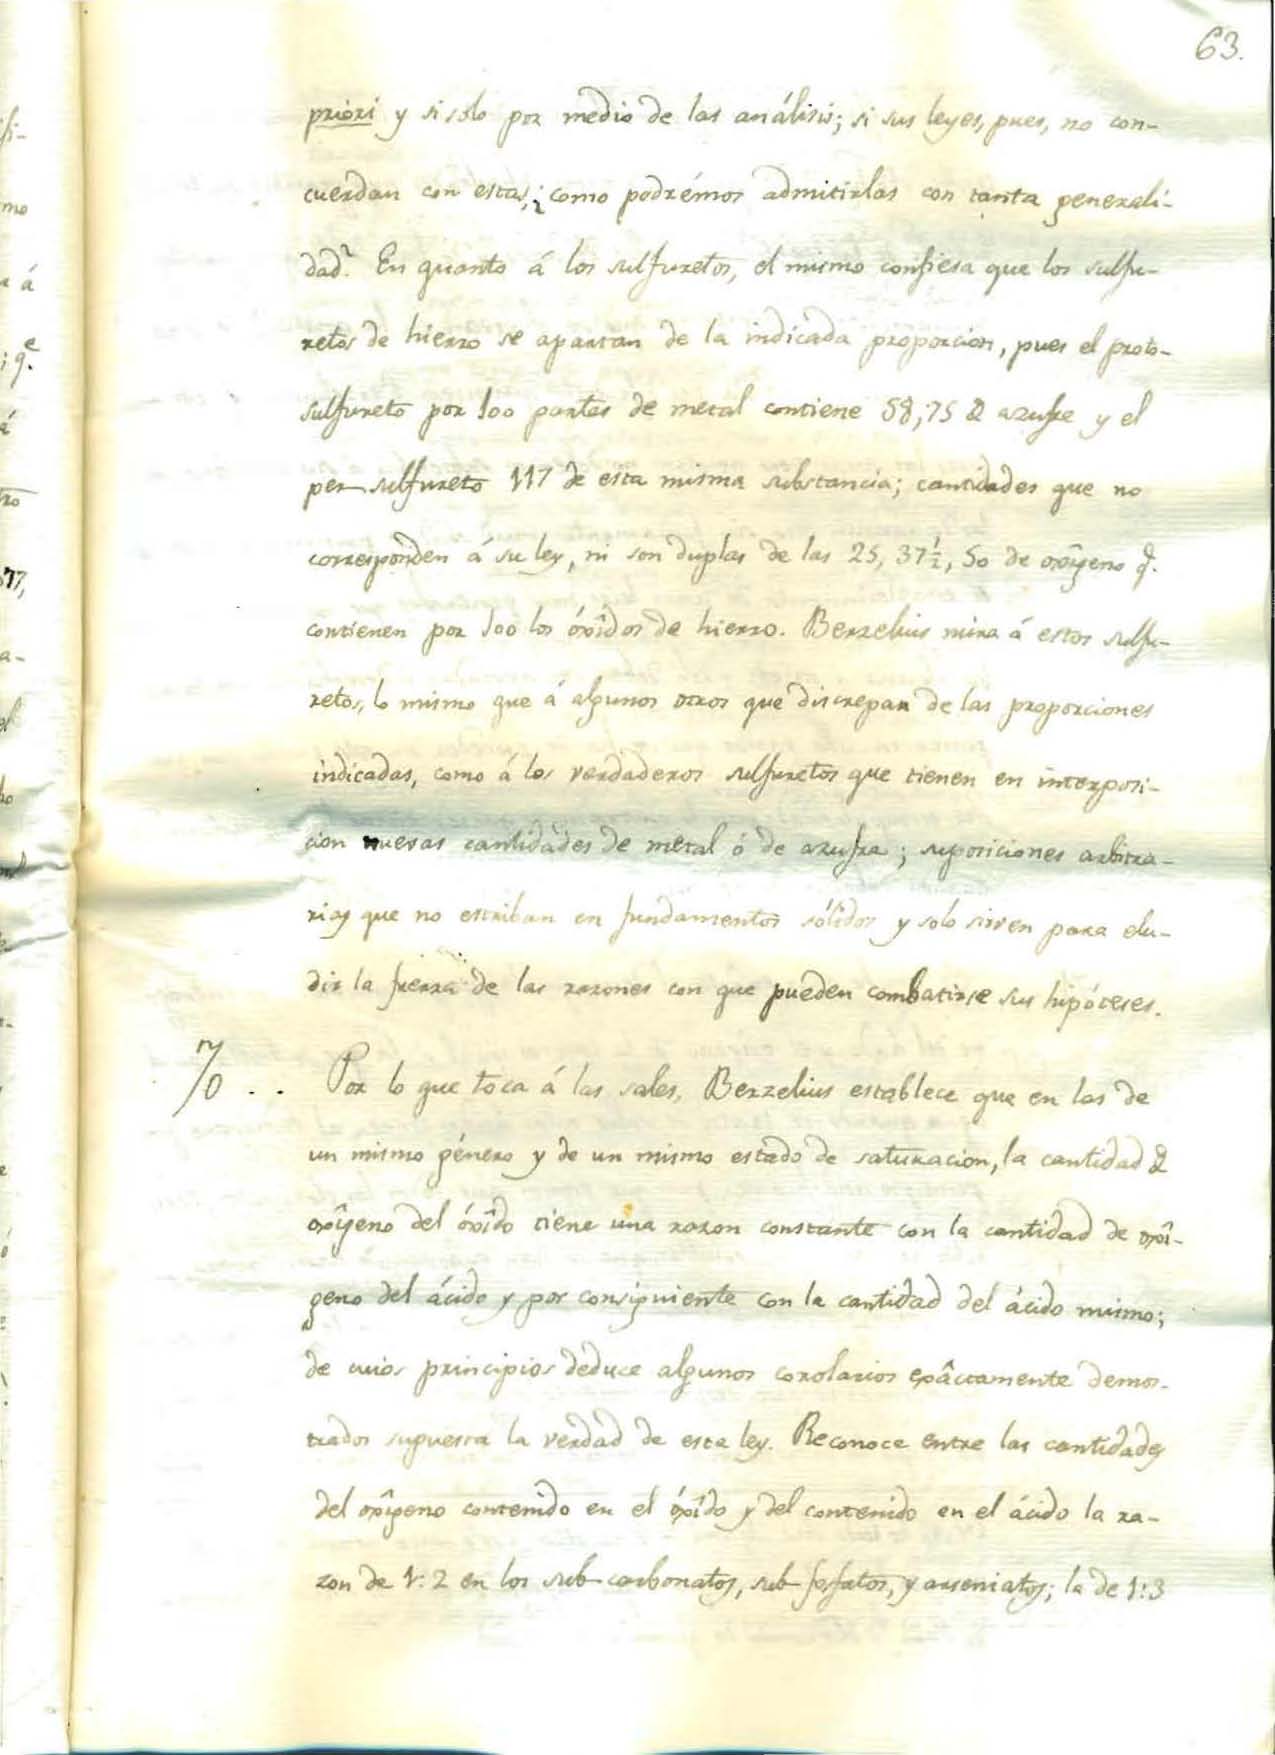 63.
priori y si solo por medio de las análisis; si sus leyes, pues, no con-
cuerdan con estas, ¿como podrémos admitirlas con tanta generali-
dad? En quanto á los sulfuretos, el mismo confiesa que los sulfu-
retos de hierro se apartan de la indicada proporcion, pues el proto-
sulfureto por 100 partes de metal contiene 58,75 de azufre y el
per-sulfureto 117 de esta misma substancia; cantidades que no
corresponden á su ley, ni son duplas de las 25, 37½, 50 de oxîgeno q.
contienen por 100 los óxîdos de hierro. Berzelius mira á estos sulfu-
retos, lo mismo que á algunos otros que discrepan de las proporciones
indicadas, como á los verdaderos sulfuretos que tienen en interposi-
cion nuevas cantidades de metal ó de azufre; suposiciones arbitra-
rias que no estriban en fundamentos sólidos y solo sirven para elu-
dir la fuerza de las razones con que pueden combatirse sus hipóteses.
70 . . Por lo que toca á las sales, Berzelius establece que en las de
un mismo género y de un mismo estado de saturacion, la cantidad de
oxîgeno del óxîdo tiene una razon constante con la cantidad de oxî-
geno del ácido y por consiguiente con la cantidad del ácido mismo;
de cuios principios deduce algunos corolarios exâctamente demos-
trados supuesta la verdad de esta ley. Reconoce entre las cantidades
del oxîgeno contenido en el óxîdo y del contenido en el ácido la ra-
zon de 1:2 en los sub-carbonatos, sub-fosfatos, y arseniatos; la de 1:3